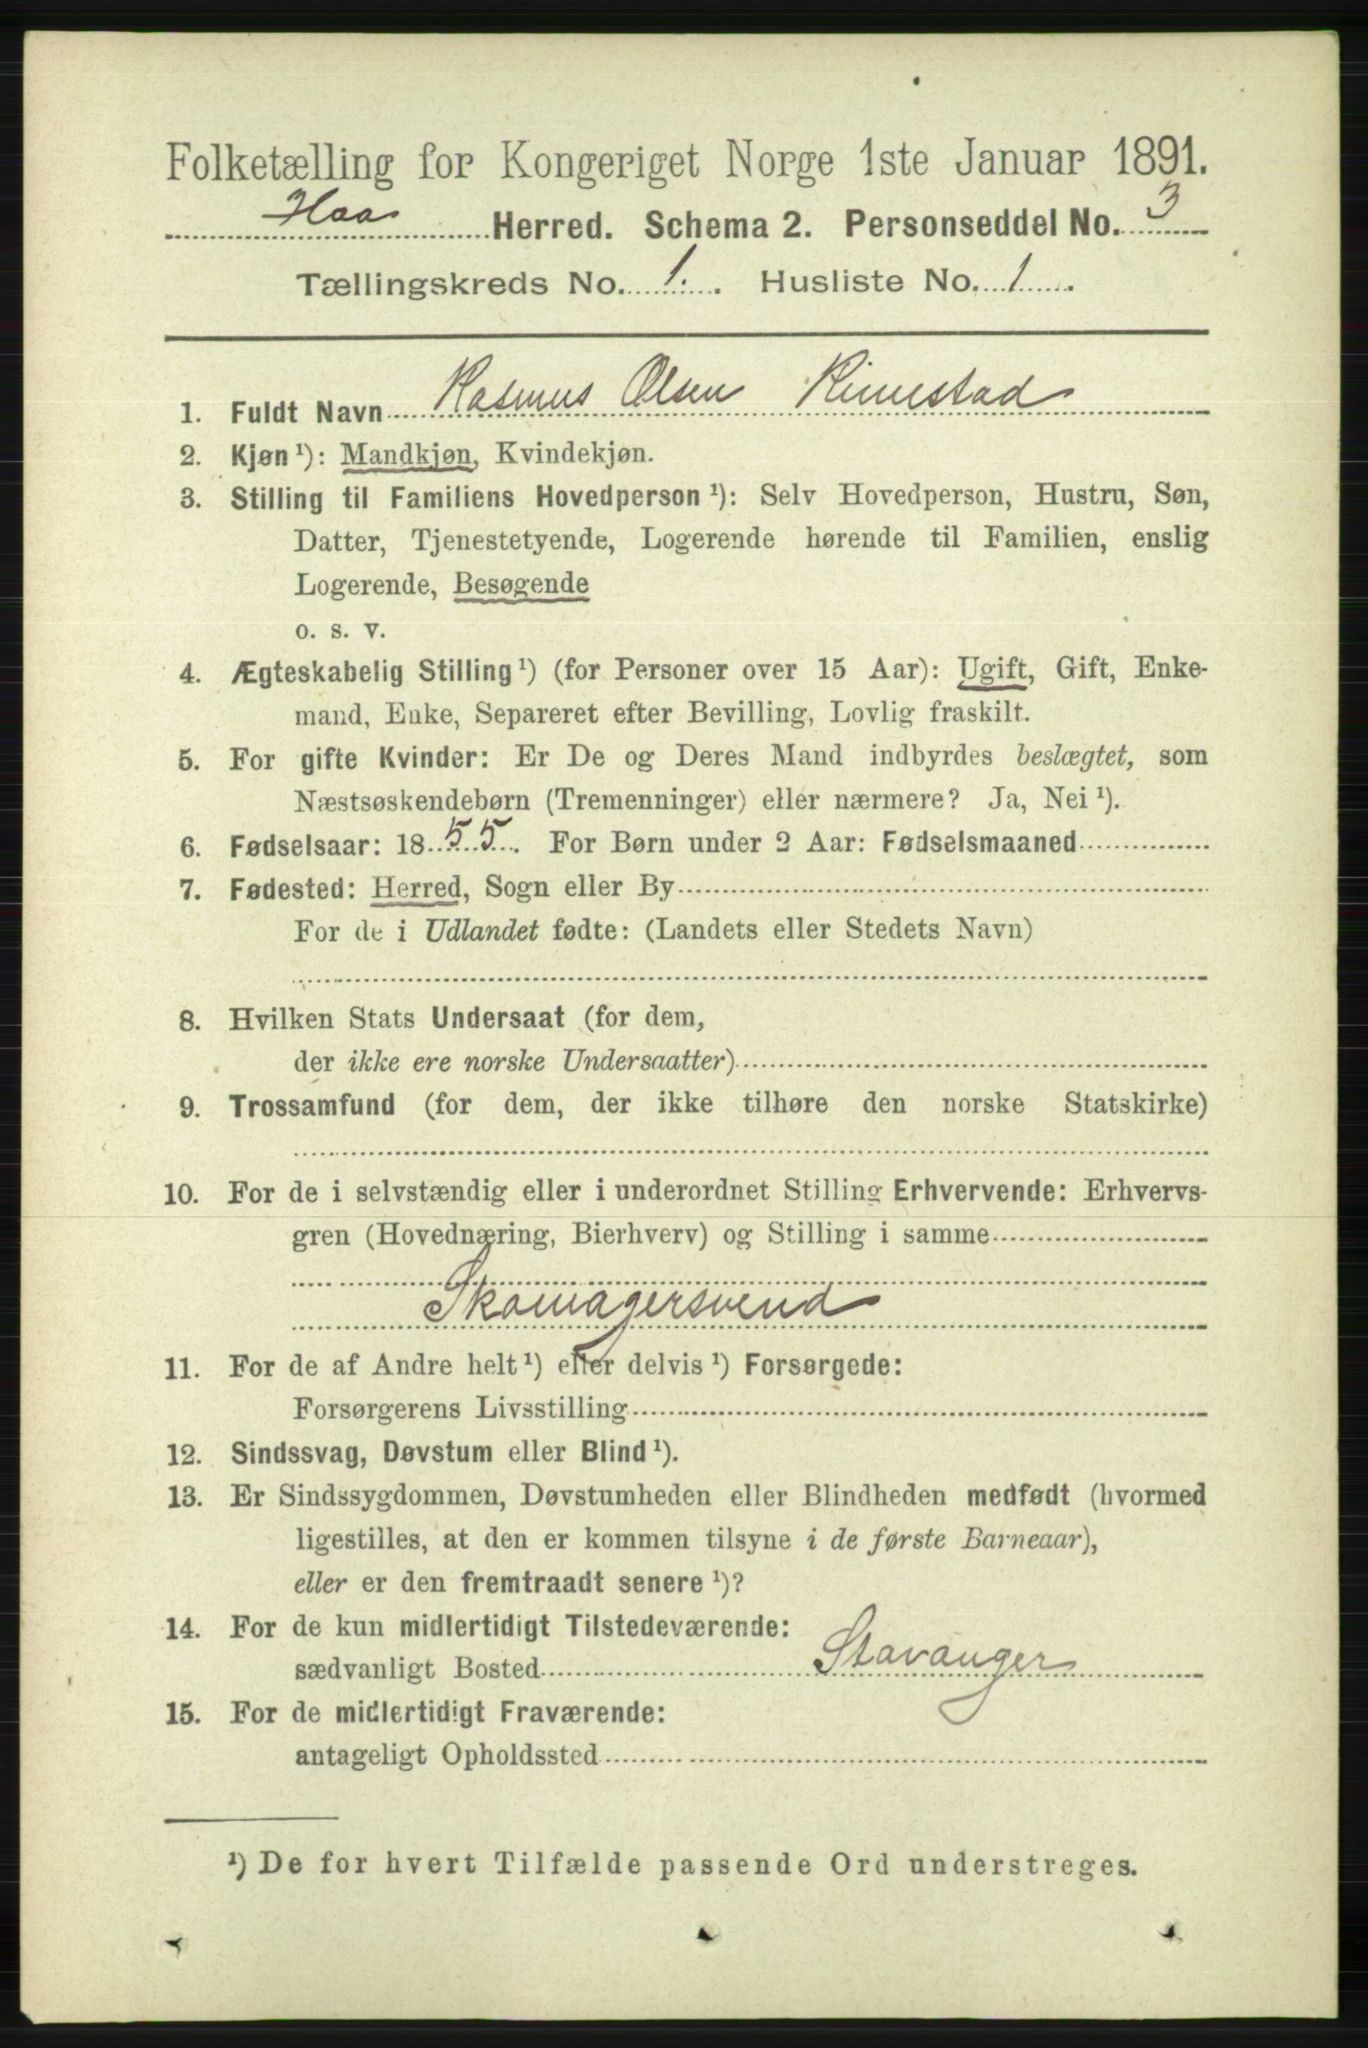 Folketælling for Kongeriget Norge 1ste Januar 1891.
Haa Herred. Schema 2. Personseddel No. 3
Tællingskreds No. 1. Husliste No. 1.
1. Fuldt Navn Rasmus Olsen Rimestad
2. Kjøn ¹): Mandkjøn, Kvindekjøn.
3. Stilling til Familiens Hovedperson ¹): Selv Hovedperson, Hustru, Søn,
Datter, Tjenestetyende, Logerende hørende til Familien, enslig
Logerende, Besøgende
o. s. v.
4. Ægteskabelig Stilling ¹) (for Personer over 15 Aar): Ugift, Gift, Enke-
mand, Enke, Separeret efter Bevilling, Lovlig fraskilt.
5. For gifte Kvinder: Er De og Deres Mand indbyrdes beslægtet, som
Næstsøskendebørn (Tremenninger) eller nærmere? Ja, Nei ¹).
6. Fødselsaar: 1855. For Børn under 2 Aar: Fødselsmaaned
7. Fødested: Herred, Sogn eller By
For de i Udlandet fødte: (Landets eller Stedets Navn)
8. Hvilken Stats Undersaat (for dem,
der ikke ere norske Undersaatter)
9. Trossamfund (for dem, der ikke tilhøre den norske Statskirke)
10. For de i selvstændig eller i underordnet Stilling Erhvervende: Erhvervs-
gren (Hovednæring, Bierhverv) og Stilling i samme
Skomagersvend
11. For de af Andre helt ¹) eller delvis ¹) Forsørgede:
Forsørgerens Livsstilling
12. Sindssvag, Døvstum eller Blind ¹).
13. Er Sindssygdommen, Døvstumheden eller Blindheden medfødt (hvormed
ligestilles, at den er kommen tilsyne i de første Barneaar),
eller er den fremtraadt senere ¹)?
14. For de kun midlertidigt Tilstedeværende:
sædvanligt Bosted Stavanger
15. For de midlertidigt Fraværende:
antageligt Opholdssted
¹) De for hvert Tilfælde passende Ord understreges.